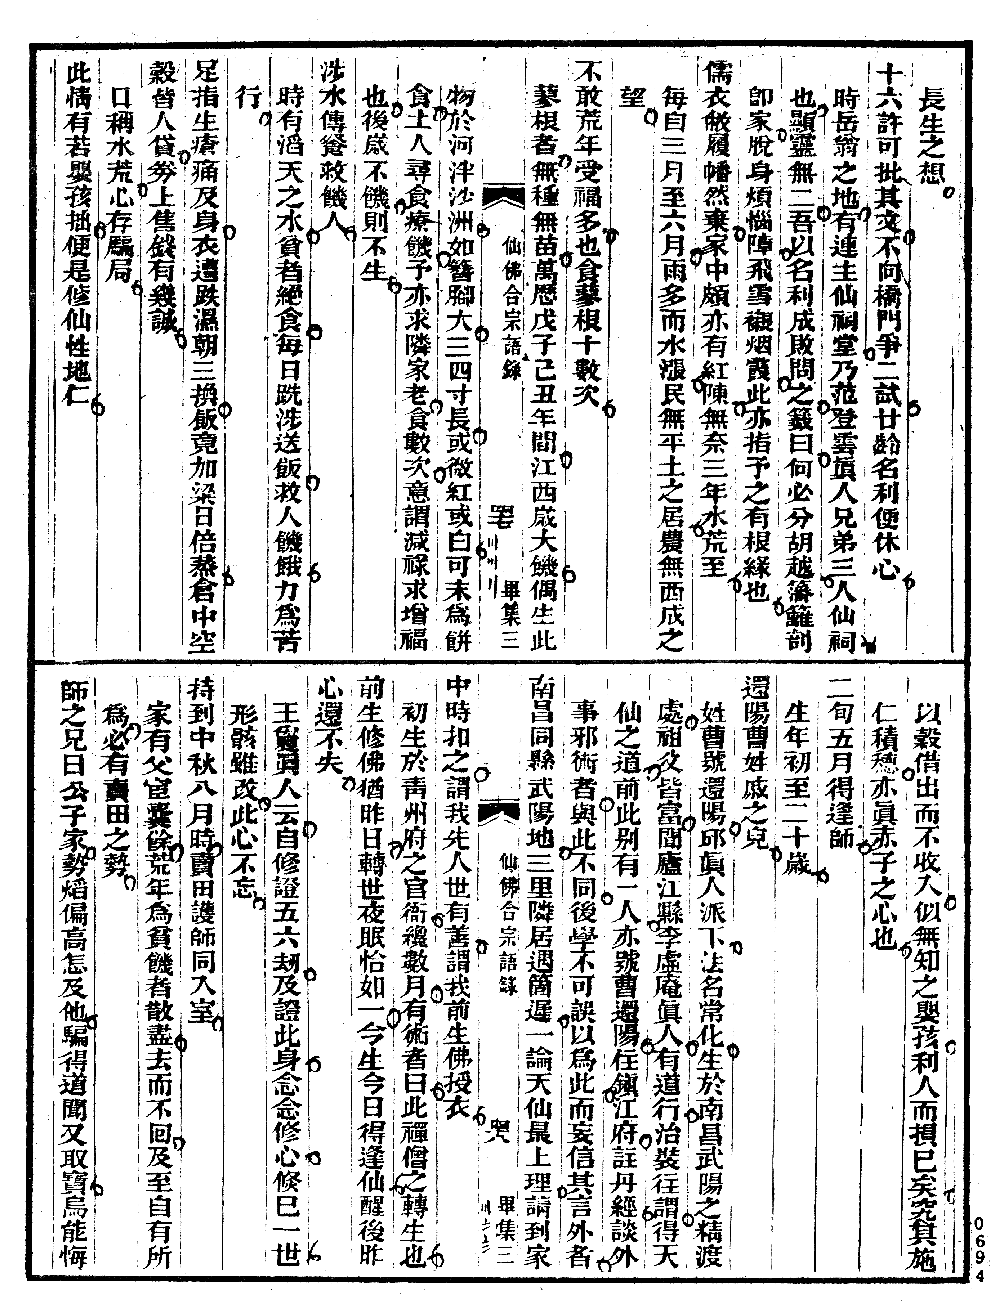 長生之想
十六許可批其文不向橋門爭二試廿齡名利便休心
時岳翁之地有連主仙祠堂乃范登雲眞人兄弟三人仙祠
也顯靈無二吾以名利成敗問之籤曰何必分胡越藩籬剖
卽家脫身煩惱障飛雪襯烟霞此亦指予之有根緣也
儒衣敝履幡然棄家中頗亦有紅陳無奈三年水荒至
每自三月至六月雨多而水漲民無平土之居農無西成之
望
不敢荒年受福多也食蓼根十數次
蓼根者無種無苗萬曆戊子己丑年間江西歲大饑偶生此
仙佛合宗語錄
畢集三
物於河泮沙洲如簪腳大三四寸長或微紅或白可末爲餅
食土人尋食療饑予亦求隣家老食數次意謂減祿求增福
也後歲不饑則不生
涉水傳餐救饑人
時有滔天之水貧者絕食每日跣涉送飯救人饑餓力爲苦
行
足指生瘡痛及身衣遭跌濕朝三換飯竟加梁日倍蒸倉中空
穀皆人貸劵上售錢有幾誠
口稱水荒心存騙局
此情有若嬰孩拙便是修仙性地仁
以穀借出而不收入似無知之嬰孩利人而損巳矣究其施
仁積德亦眞赤子之心也
二旬五月得逢師
生年初至二十歲
還陽曹姓戚之兒
姓曹號還陽邱眞人派下法名常化生於南昌武陽之精渡
處祖父皆富聞廬江縣李虛庵眞人有道行治裝往謂得天
仙之道前此别有一人亦號曹還陽住鎭江府註丹經談外
事邪術者與此不同後學不可誤以爲此而妄信其言外者
南昌同縣武陽地三里隣居遇簡遲一論天仙最上理請到家
仙佛合宗語錄
畢集三
中時扣之謂我先人世有善謂我前生佛授衣
初生於靑州府之官衙纔數月有術者曰此禪僧之轉生也
前生修佛猶昨日轉世夜眠恰如一今生今日得逢仙醒後昨
心還不失
王重陽眞人云自修證五六刼及證此身念念修心倏巳一世
形骸雖改此心不忘
持到中秋八月時賣田護師同入室
家有父宦囊餘荒年爲貧饑者散盡去而不回及至自有所
爲必有賣田之勢
師之兄曰公子家勢熖偏高怎及他騙得道聞又取寶烏能悔